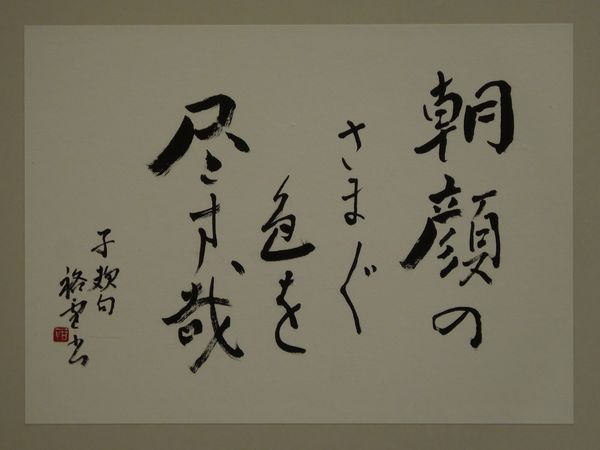 朝顔の
さま〲
色を
尽す哉
子規句
書